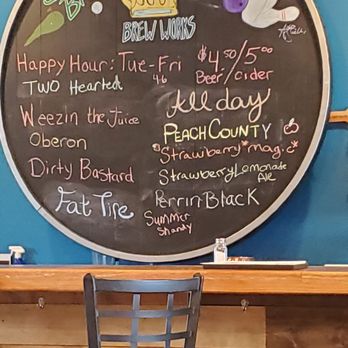 BREW WORKS
Happy Hour: Tue-Fri
4-6
$4.50/5.00
Beer/Cider
TWO HearteD
Weezin the Juice
Oberon
Dirty Bastard
Fat Tire
All day
PEACH COUNTY
*Strawberry*magic*
Strawberry Lemonade
Ale
Perrin Black
Summer
Shandy